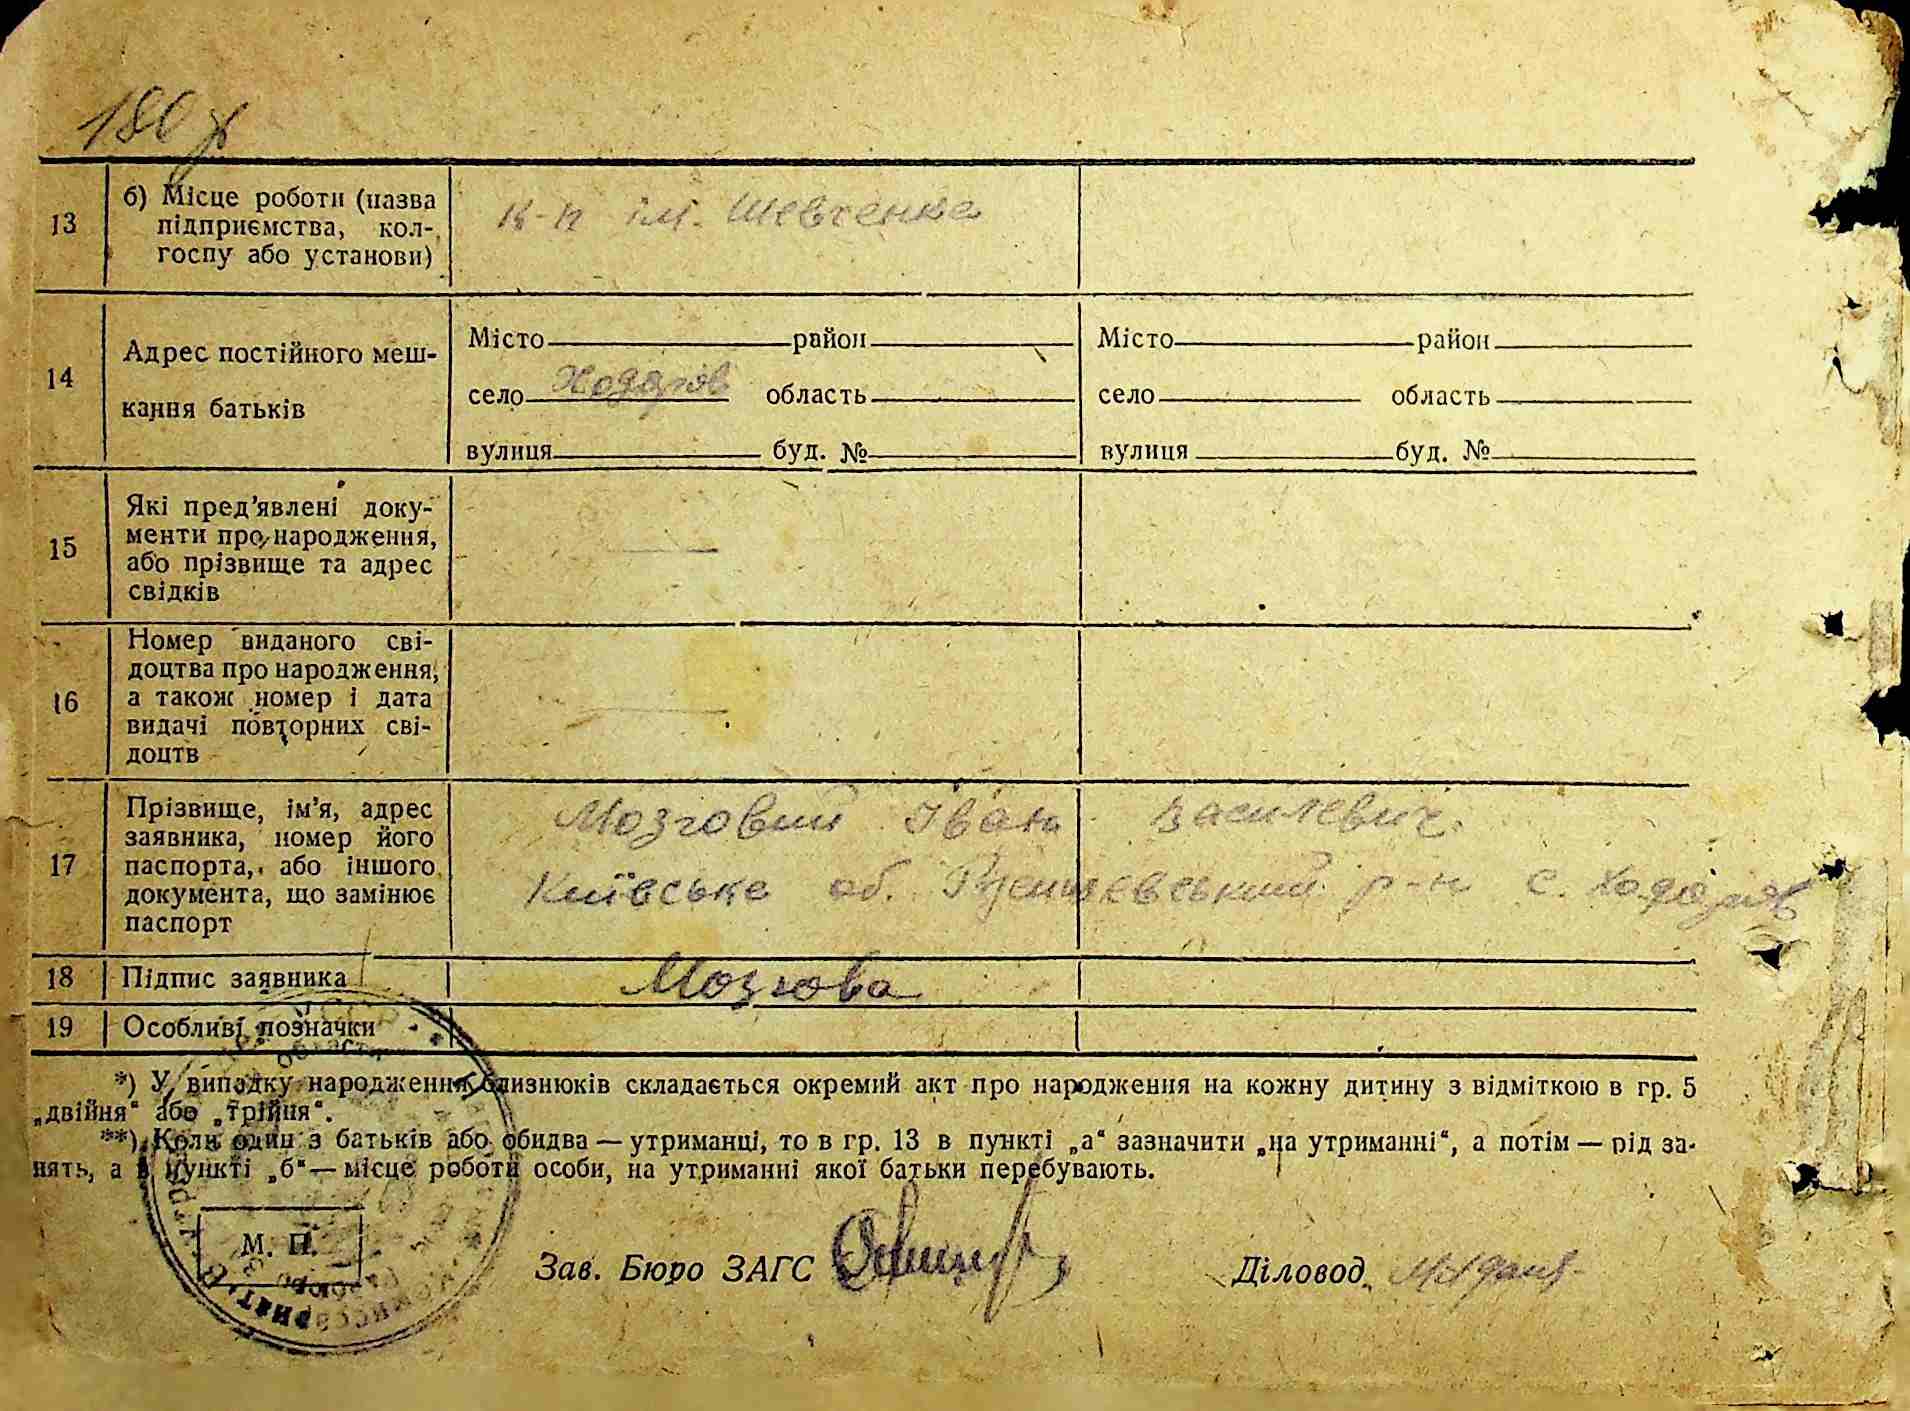 180
13
б) Місце роботи (назва
підприємства, кол-
госпу або установи)
к-п ім. Шевченка
14
Адрес постійного меш-
кання батьків
Місто район
село Ходорів область
вулиця буд. №
Місто район
село область
вулиця буд. №
15
Які пред'явлені доку-
менти про народження,
або прізвище та адрес
свідків
16
Номер виданого сві-
доцтва про народження,
а також номер і дата
видачі повторних сві-
доцтв
17
Прізвище, ім'я, адрес
заявника, номер його
паспорта, або іншого
документа, що замінює
паспорт
Мозговий Іван Василевич.
Київське об. р-н с. Ходорів
18
Підпис заявника
Мозгова
19
Особливі позначки
*) У випадку народження близнюків складається окремий акт про народження на кожну дитину з відміткою в гр. 5
„двійня“ або „трійня“.
**) Коли один з батьків або обидва — утриманці, то в гр. 13 в пункті „а“ зазначити „на утриманні“, а потім — рід за-
нять, а в пункті „б“ — місце роботи особи, на утриманні якої батьки перебувають.
М. П.
Зав. Бюро ЗАГС
Діловод